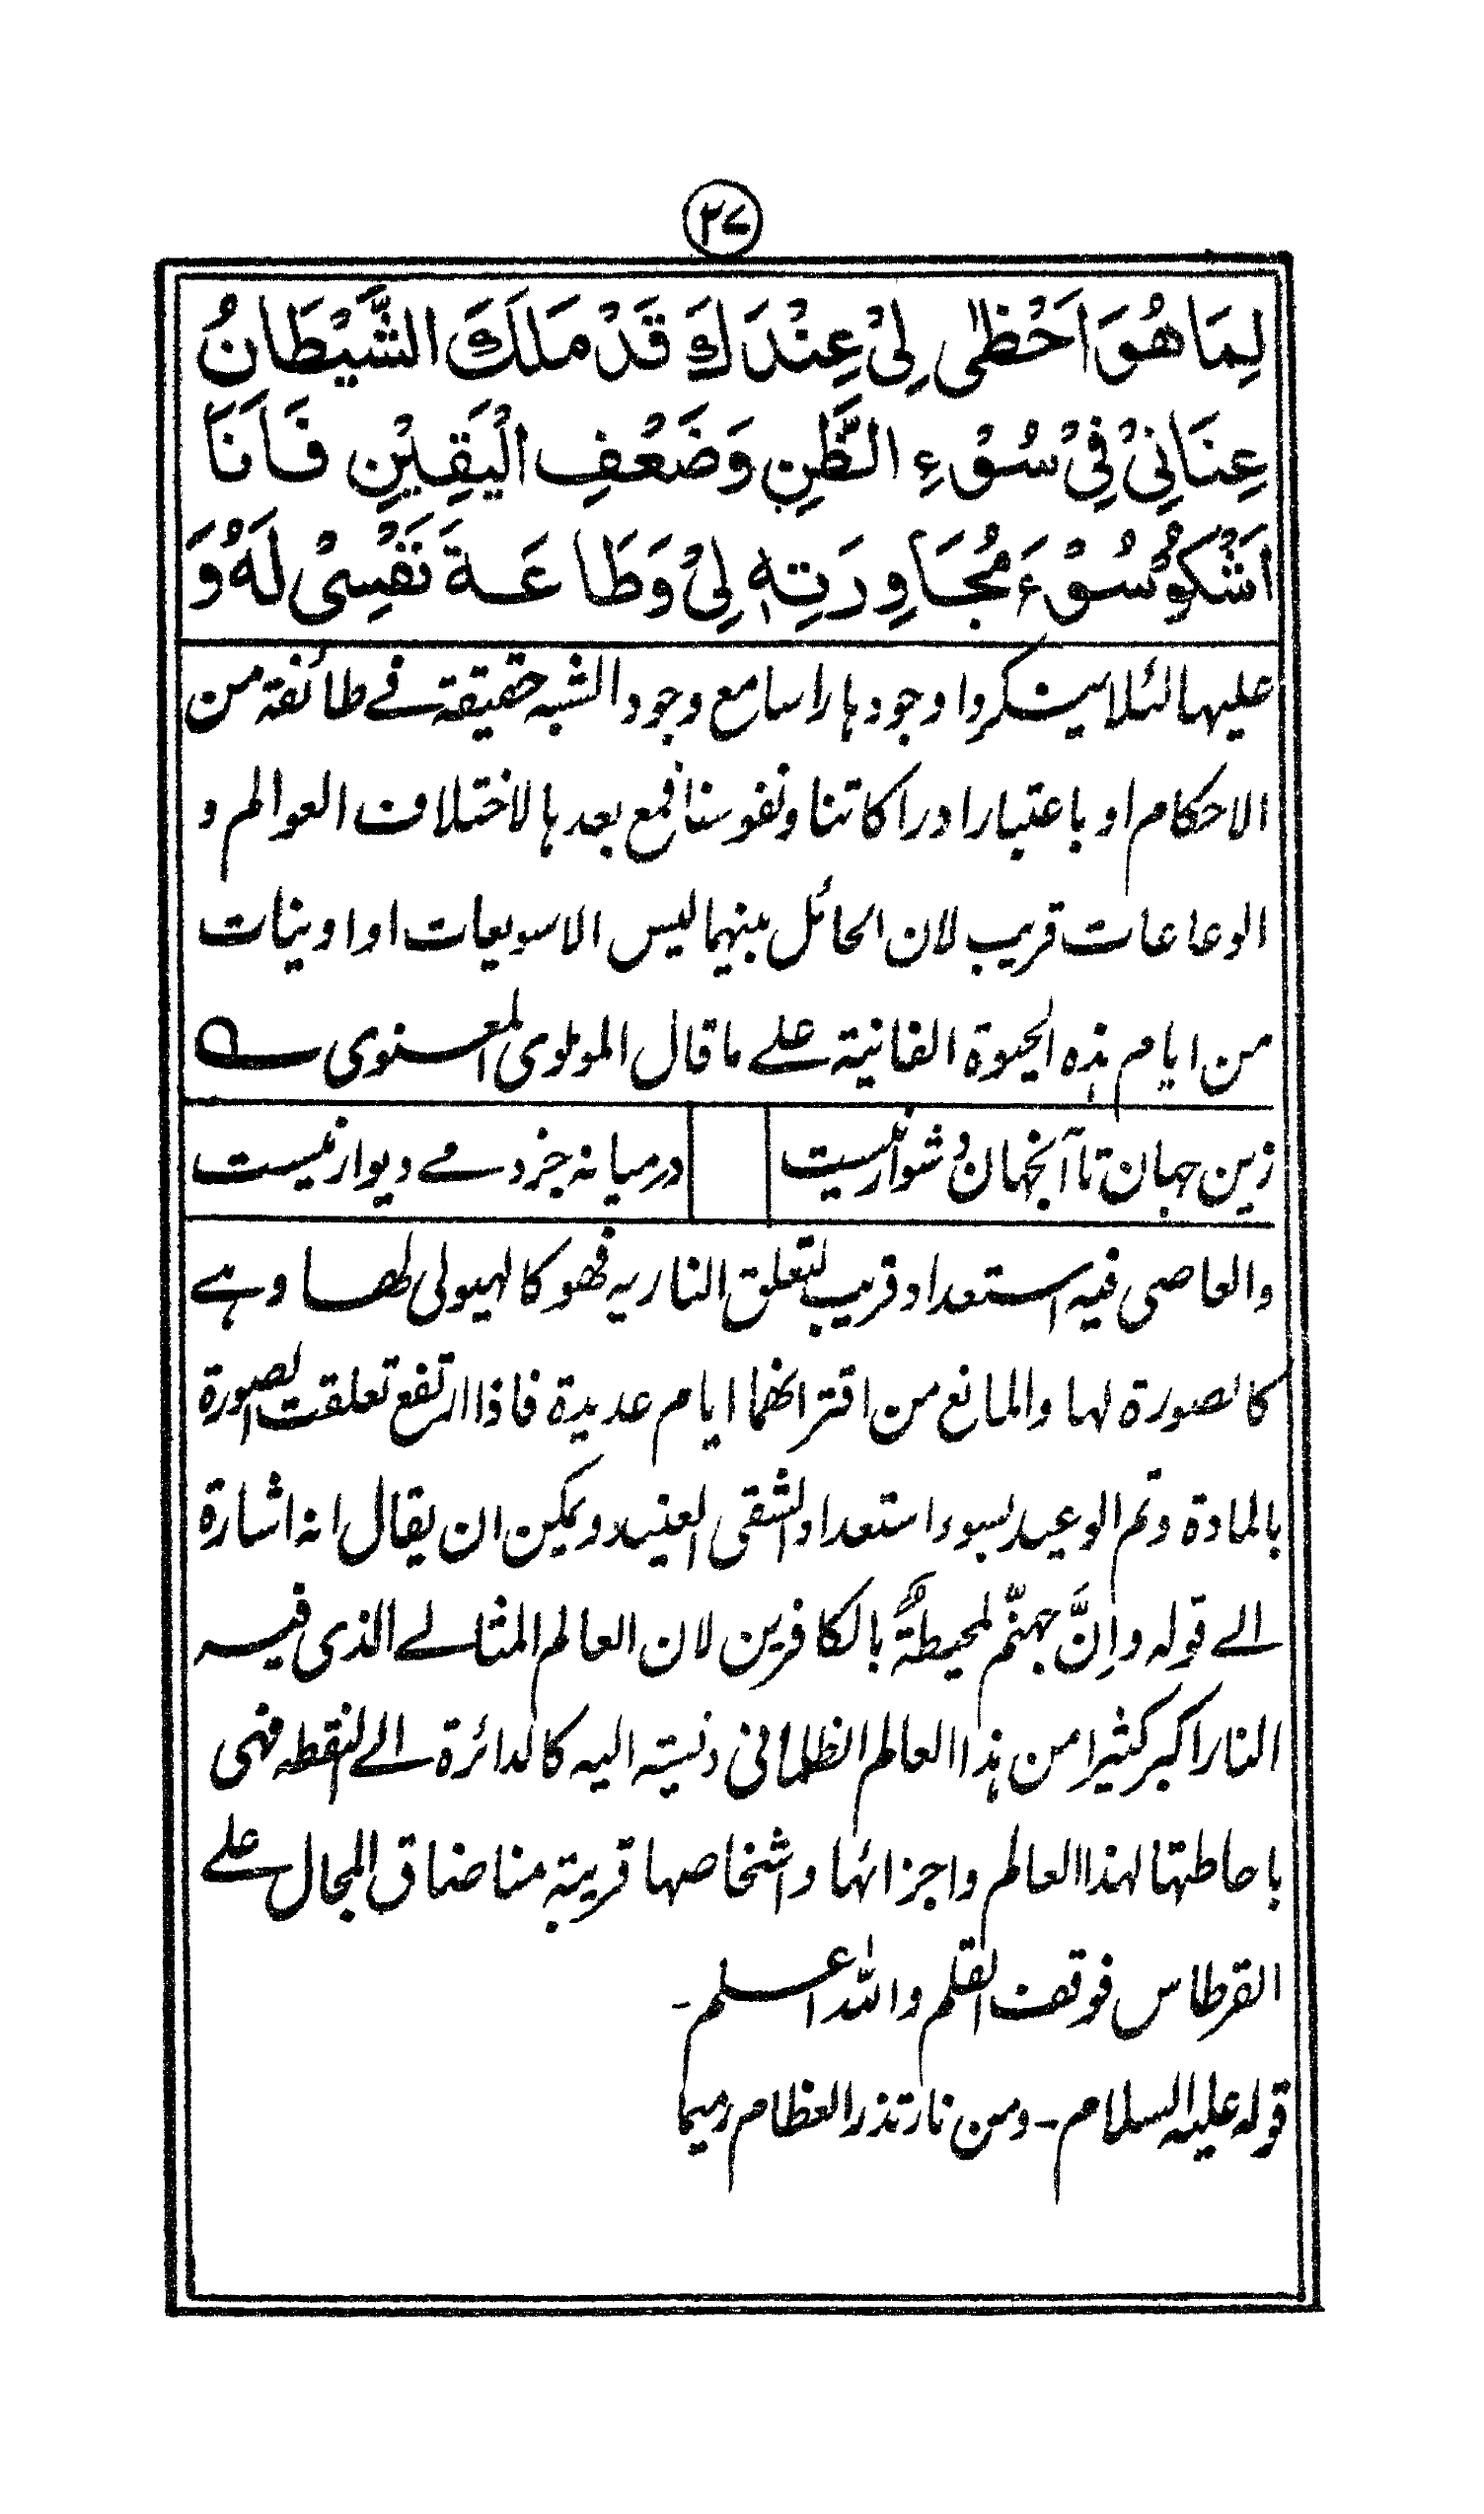 ٢٧
لِمَا هُوَ اَحْظٰى لِيْ عِنْدَكَ قَدْ مَلَكَ الشَّيْطَانُ
عِنَانِيْ فِيْ سُوْءِ الظَّنِ وَضَعْفِ الْيَقِيْنِ فَاَنَا
اَشْكُوْ سُوْءَ مُجَاوِرَتِهٖ لِيْ وَطَاعَةَ نَفْسِيْ لَهُ وَ
عليها لئلا ينكروا وجودها راسا مع وجود الشبه حقيقة في طائفة من
الاحكام او باعتبار ادراكاتنا ونفوسنا فمع بعدها لاختلاف العوالم و
الوعاعات قريب لان الحائل بينهما ليس الا سويعات او اوينات
من ايام هذه الحيوة الفانية علے ما قال المولوى المعنوى
زین جهان تا آنجهان دشوار نیست
درمیانه جز دمے دیوار نیست
والعاصى فيه استعداد قريب لتعلق النار به فهو كالهيولى لها وهے
كالصورة لها والمانع من اقترانهما ايام عديدة فاذا ارتفع تعلقت الصورة
بالمادة وتم الوعيد لسوء استعداد الشقى العنيد ويمكن ان يقال انه اشارة
الے قوله واِنَّ جهنّم لمحيطةٌ بالكافرين لان العالم المثالے الذى فيه
النار اكبر كثيرا من هذا العالم الظلمانى ونسبته اليه كالدائرة الے النقطه فهى
باحاطتها لهذا العالم واجزائها واشخاصها قريبة منا ضاق المجال علے
القرطاس فوقف القلم والله اعلم۔
قوله عليه السلام ۔ ومن نار تذر العظام رميما